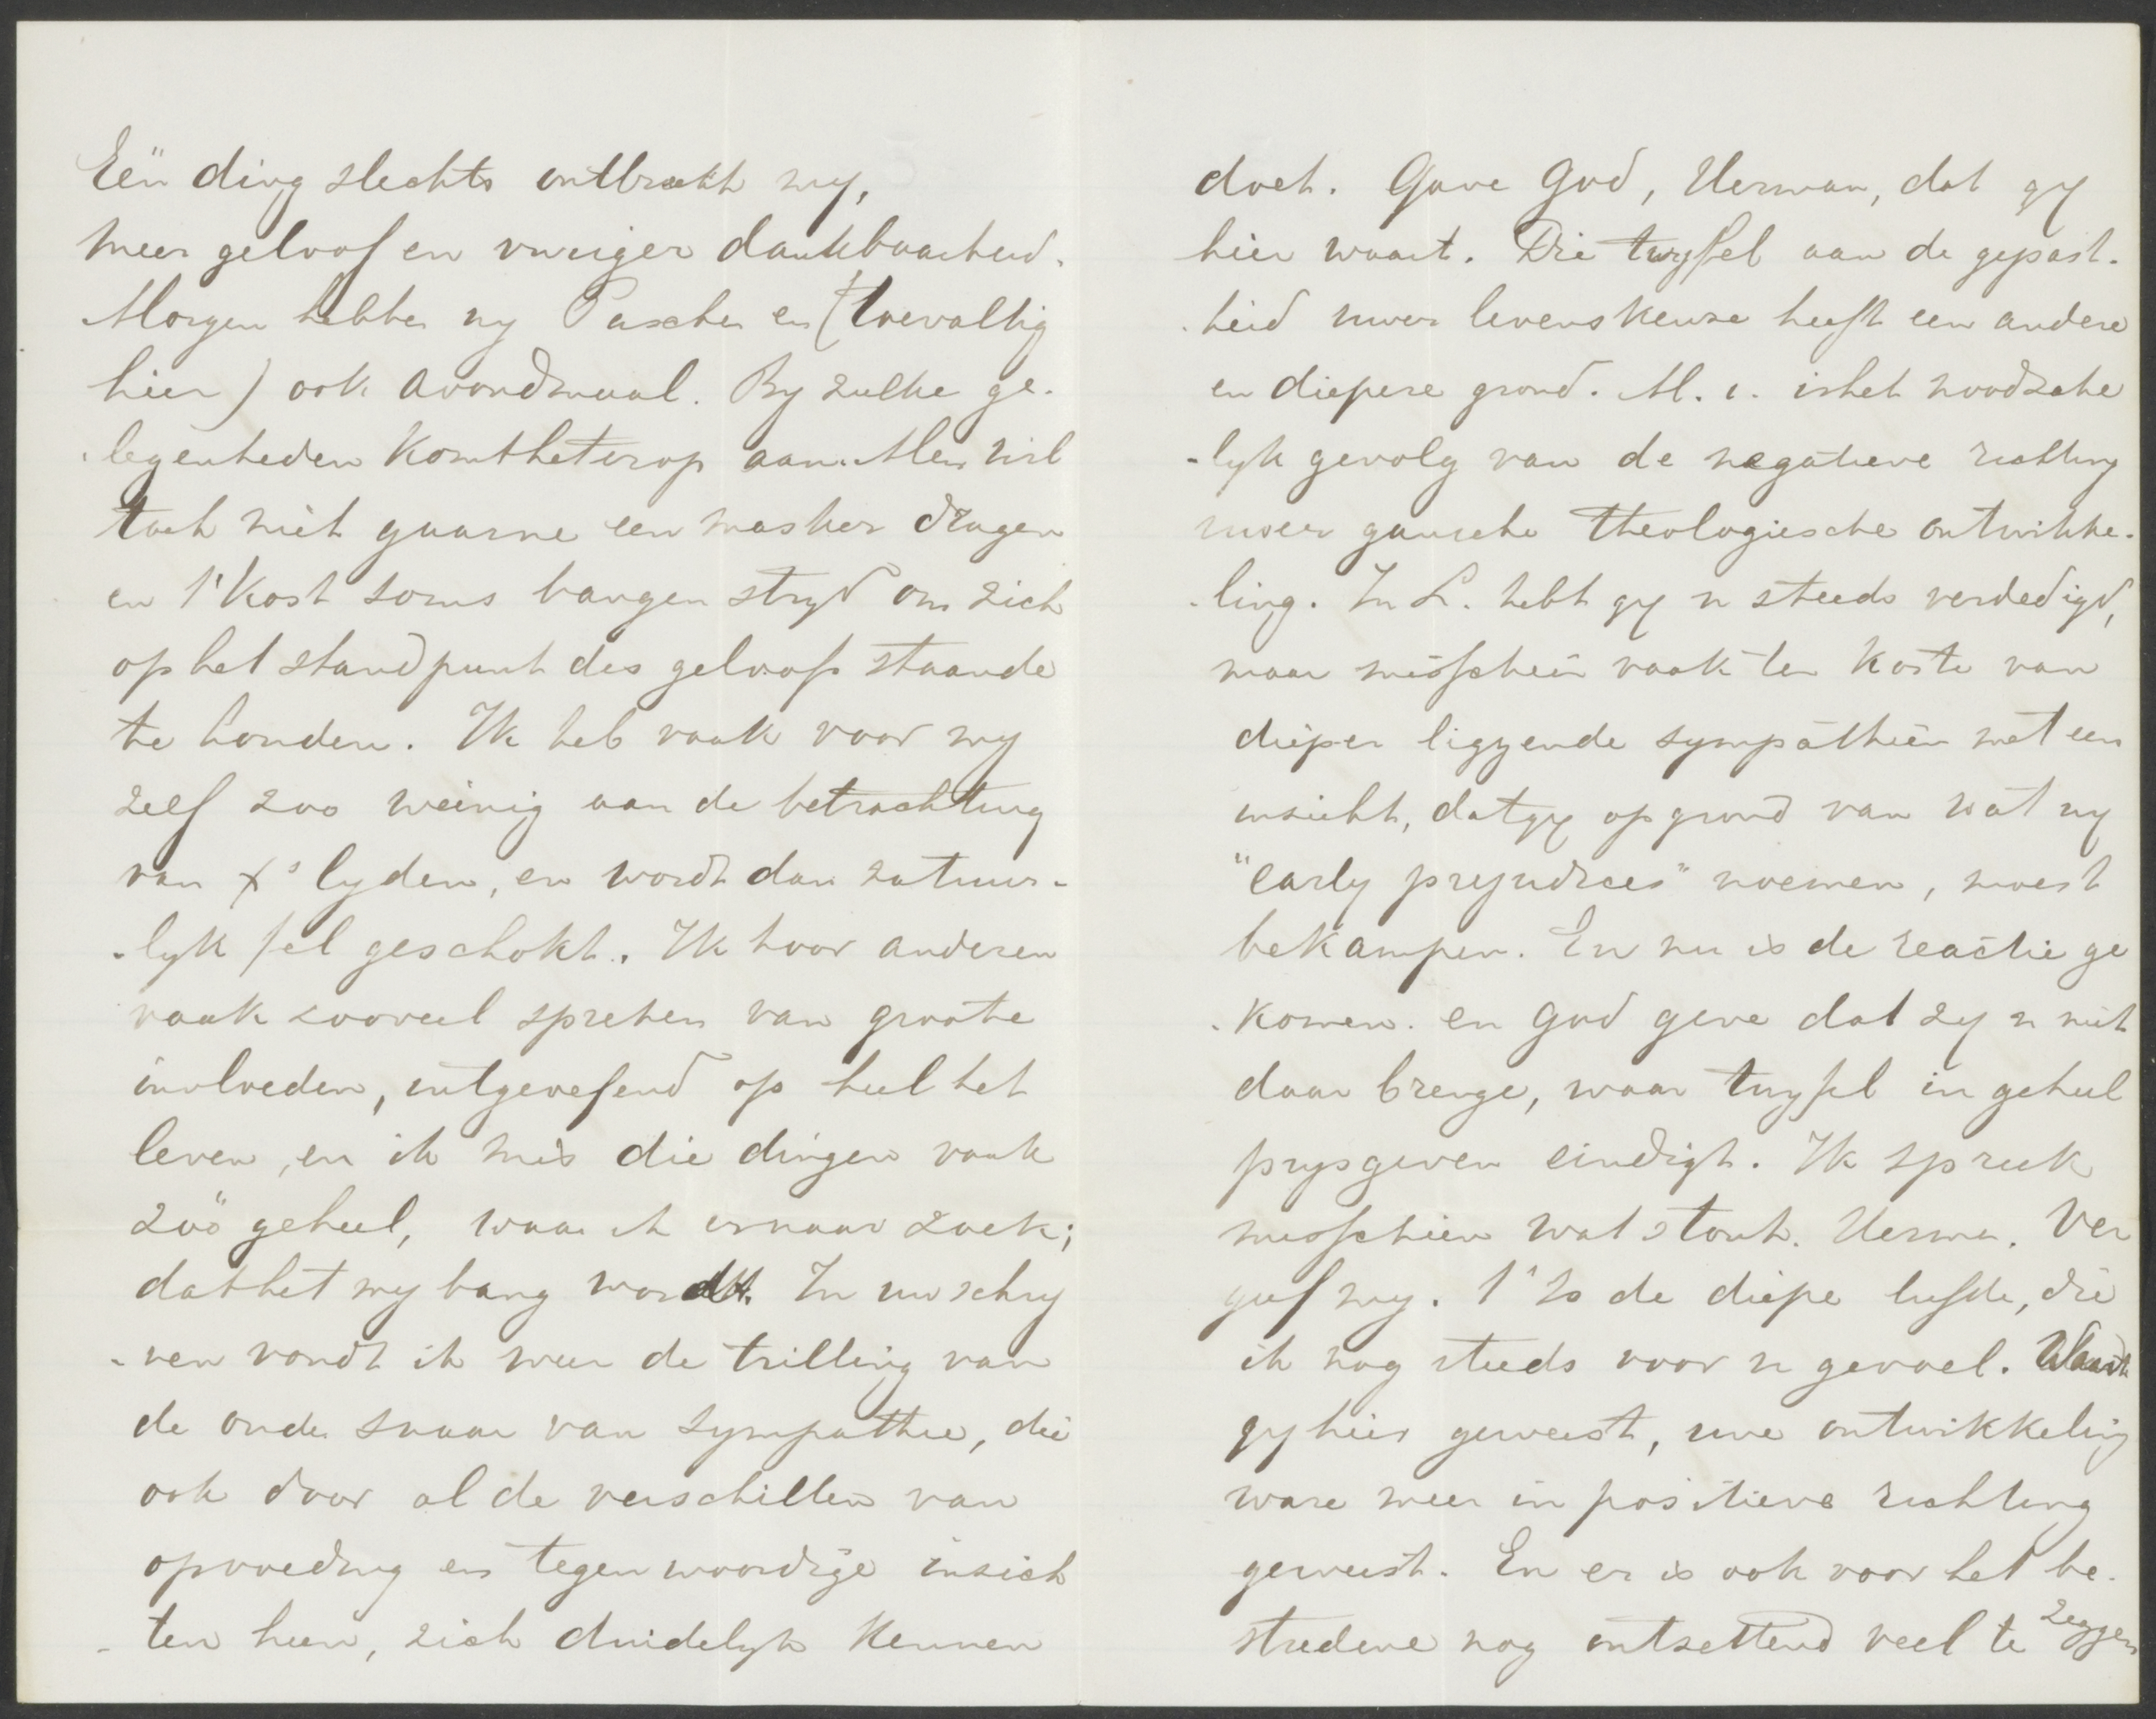 Eën ding slechts ontbreekt my,
meer geloof en vuriger dankbaarheid.
Morgen hebben wy Paschen en (toevallig
hier) ook avondmaal. By zulke ge-
legenheden komt het erop aan. Men wil
toch niet gaarne een masker dragen
en 't kost soms bangen stryd om zich
op het standpunt des geloofs staande
te houden. Ik heb vaak voor my
zelf zoo weinig aan de betrachting
van X's lyden, en wordt dan natuur-
-lyk fel geschokt. Ik hoor anderen
vaak zooveel spreken van groote
invloeden, uitgeoefend op heel het
leven, en ik mis die dingen vaak
zoö geheel, waar ik ernaar zoek;
dat het my bang wordt. In uw schry
-ven vondt ik weer de trilling van
de oude snaar van sympathie, die
ook door al de verschillen van
opvoeding en tegenwoordige inzich
-ten heen, zich duidelyk kennen
doet. Gave God, Herman, dat gy
hier waart. Die twyfel aan de gepast-
-heid uwer levenskeuze heeft een andere
en diepere grond. M. i. is het noodzake
-lyk gevolg van de negatieve richting
uwer gansche theologiesche ontwikke-
-ling. In L. hebt gy u steeds verdedigd,
maar misschien vaak ten koste van
dieper liggende sympathiën met een
inzicht, dat gy op grond van wat wy
"early prejudices" noemen, moest
bekampen. En nu is de reactie ge
-komen. en God geve dat zy u niet
daar brenge, waar twyfel in geheel
prysgeven eindigt. Ik spreek
misschien wat stout. Herman. Ver
geef my. 't Is de diepe liefde, die
ik nog steeds voor u gevoel. Waart
gy hier geweest, uwe ontwikkeling
ware meer in positieve richting
geweest. En er is ook voor het be-
stredene nog ontzettend veel te zeggen